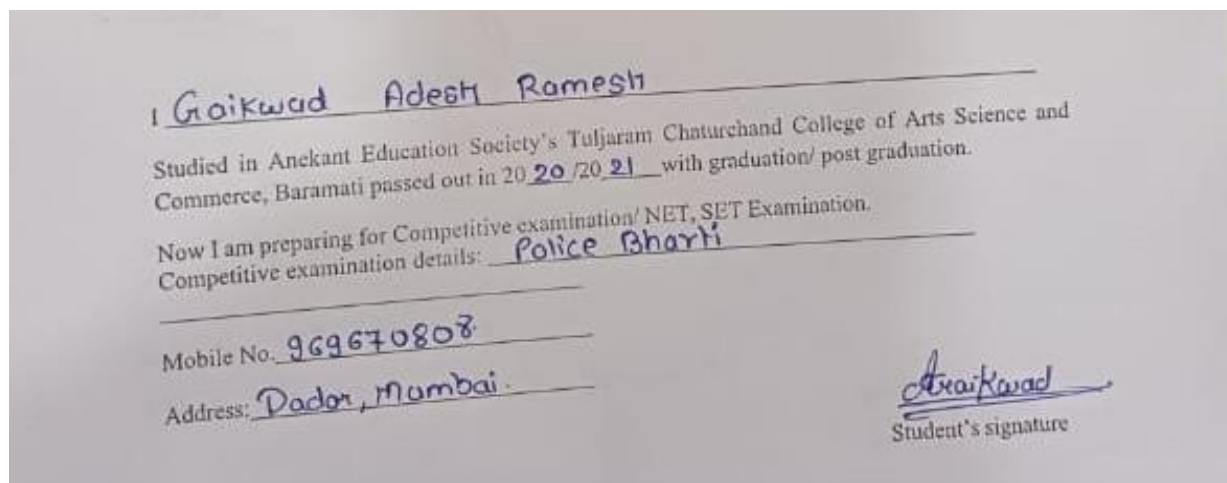 I Gaikwad Adesh Ramesh
Studied in Anekant Education Society's Tuljaram Chaturchand College of Arts Science and
Commerce, Baramati passed out in 2020/2021 with graduation/ post graduation.
Now I am preparing for Competitive examination/ NET, SET Examination.
Competitive examination details: Police Bharti
Mobile No. 969670808
Address: Dadar, Mumbai.
AGaikwad
Student's signature